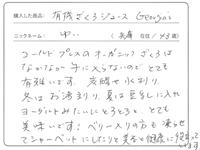 購入した商品: 有機ざくろジュース Georgia's
ニックネーム: ゆ.. (兵庫 / 43歳)
コールドプレスのオーガニックざくろは
なかなか手に入らないので とても
有難いです。炭酸や水割り、
冬はお湯割り、夏は豆乳に入れ
ヨーグルトみたいにとろとろ、とても
美味しいです! ベリー入りの方も凍らせ
てシャーベットにしたりと美容と健康に